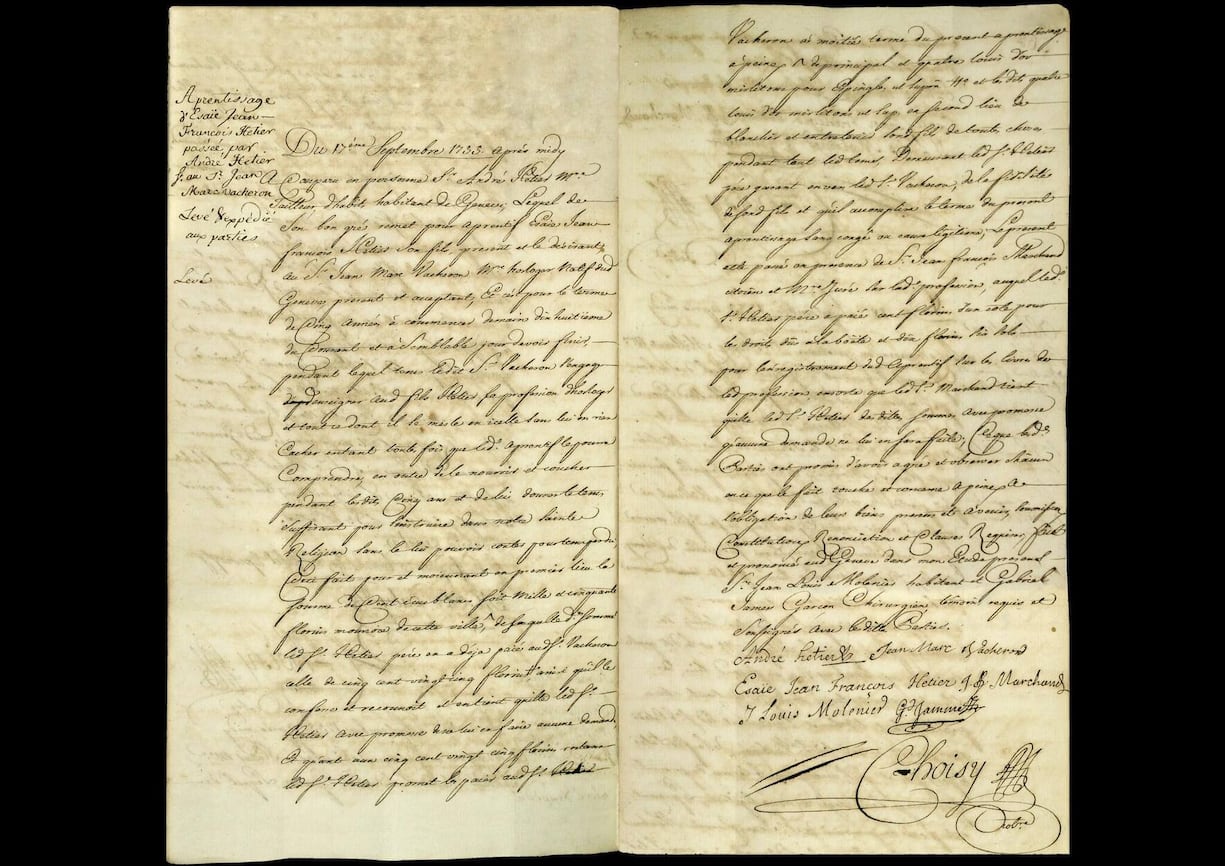 Aprentissage
d'Esaïe Jean
François Hetier
passée par
André Hétier
au Sr. Jean
Marc Vacheron
Levé & expédié
aux parties
Levé
Du 17ème Septembre 1733 après midy
A Comparu en personne Sr. André Hetier Mtre
Taillier d'habits habitant de Geneve, Lequel de
Son bon grés remet pour aprentif Esaïe Jean
françois Hetier Son fils present et le désirant
au Sr. Jean Marc Vacheron Mtre horloger Natif dud
Geneve, present et acceptant, Et c'est pour le terme
de Cinq Années à commencer demain dix huitieme
du Courant et à Semblable jour devoir finir,
pendant lequel tems ledit Sr. Vacheron s'engage
d'enseigner aud fils Hetier sa profession d'horloger
et tout ce dont il Se mesle en icelle sans lui en rien
Cacher entant toute fois que led. aprentif le pourra
Comprendre, en outre de le nourrir et coucher
pendant lesdits Cinq ans et de lui donner le tems
Suffisant pour s'instruire dans notre Sainte
Religion sans le lui pouvoir conter pour tems perdu
Ceci fait pour et moienant en premier lieu la
somme de Cent écus blancs soit Mille et cinquante
florins monoie de cette ville, de laquelle de. Somme
led Sr. Hetier père en a déja païé aud Sr. Vacheron
celle de cinq cent vingt cinq florins ainsi qu'il le
confesse et reconnoit et entient quitte led Sr.
Hetier avec promesse de ne lui en faire aucune demande
Et quant aux cinq cent vingt cinq florins restans
led Sr. Hetier promet les païer aud Sr.
Vacheron à moitié terme du present aprentissage
à peine de principal et quatre louis d'or
mirlitons pour Epingles et lesdits quatre
louis d'or mirlitons en second lieu de
blanchir et entretenir sond fils de toutes choses
pendant tout led tems, Demeurant led Sr. Hetier
père garant envers led Sr. Vacheron, de la fidelité
de sond fils et qu'il accomplira le terme du present
aprentissage sans congé ou cause légitime, Le present
acte passé en presence de Sr. Jean françois Marchand
citoïen et Mtre Juré sur lad. profession, auquel led.
Sr. Hetier père a païé cent florins d'un coté pour
les droits dus à la boëte et dix florins six sols
pour l'enregistrement dud Aprentif sur le livre de
lad profession ensorte que led Sr. Marchand tient
quitte led Sr. Hetier desdites sommes avec promesse
qu'aucune demande ne lui en sera faite, Ce que lesd.
Parties ont promis d'avoir agréé et observer chacun
en ce que le fait touche et concerne à peine &
l'obligation de leurs biens presens et avenir, Soumission
Constitution, Renonciation et Clauses Requises, fait
et prononcé aud Geneve dans mon Etude presens
Sr. Jean Loüis Molenier habitant et Gabriel
Jamier Garcon Chirurgien, témoins requis et
Soussignés avec lesdites Parties.
André hetier Jean Marc Vacheron
Esaie Jean François Hetier J. F. Marchand
J Louis Molenier
Choisy
Notre